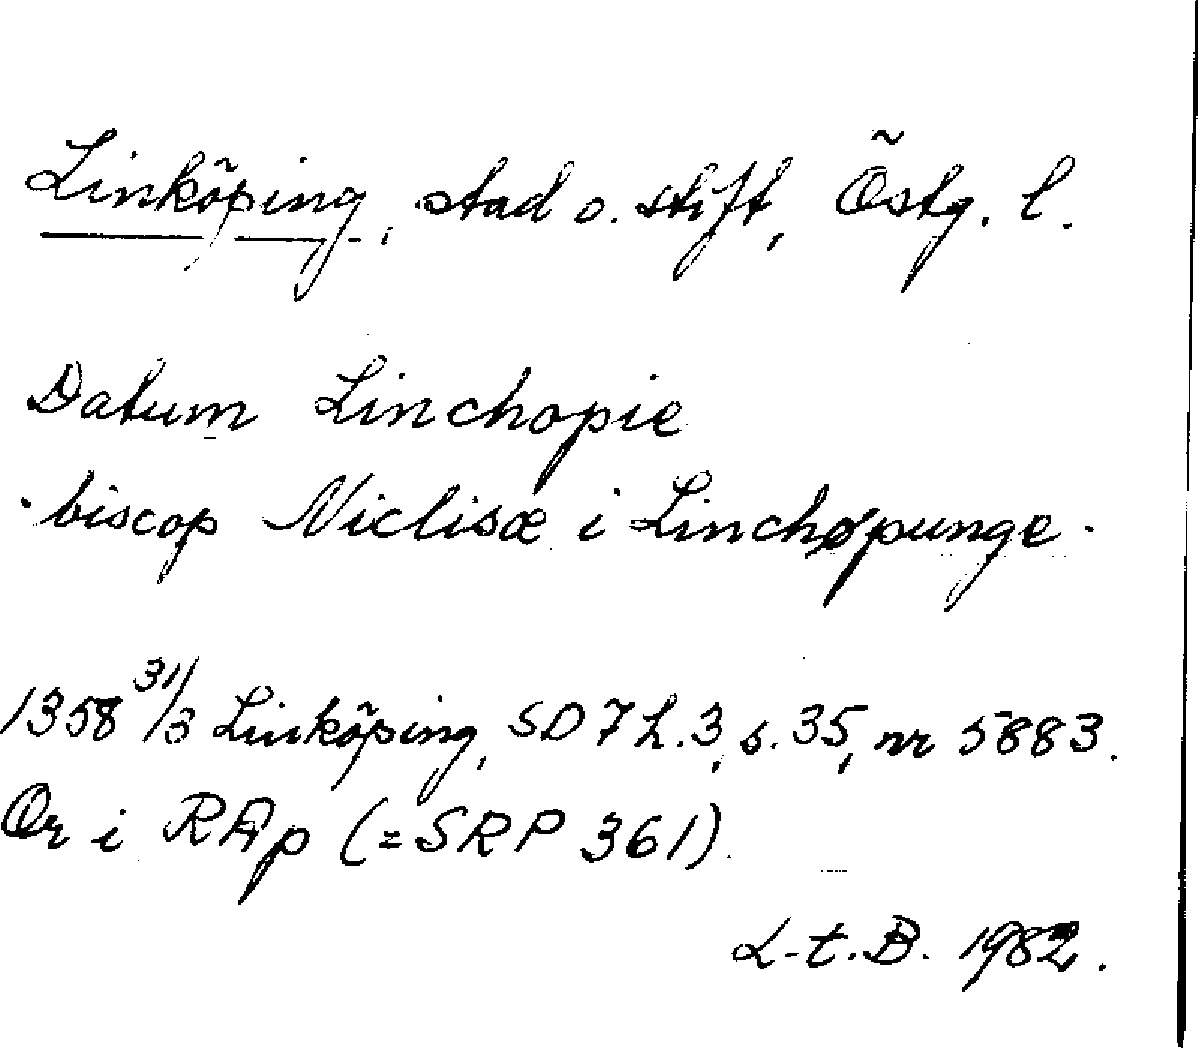 Linköping, stad o. stift, Östg. l.
Datum Linchopie
· biscop Niclisæ i Linchøpunge ·
1358 31/3 Linköping, SD 7 h. 3, s. 35, nr 5883.
Or i RAp (= SRP 361).
L-t. B. 1982.